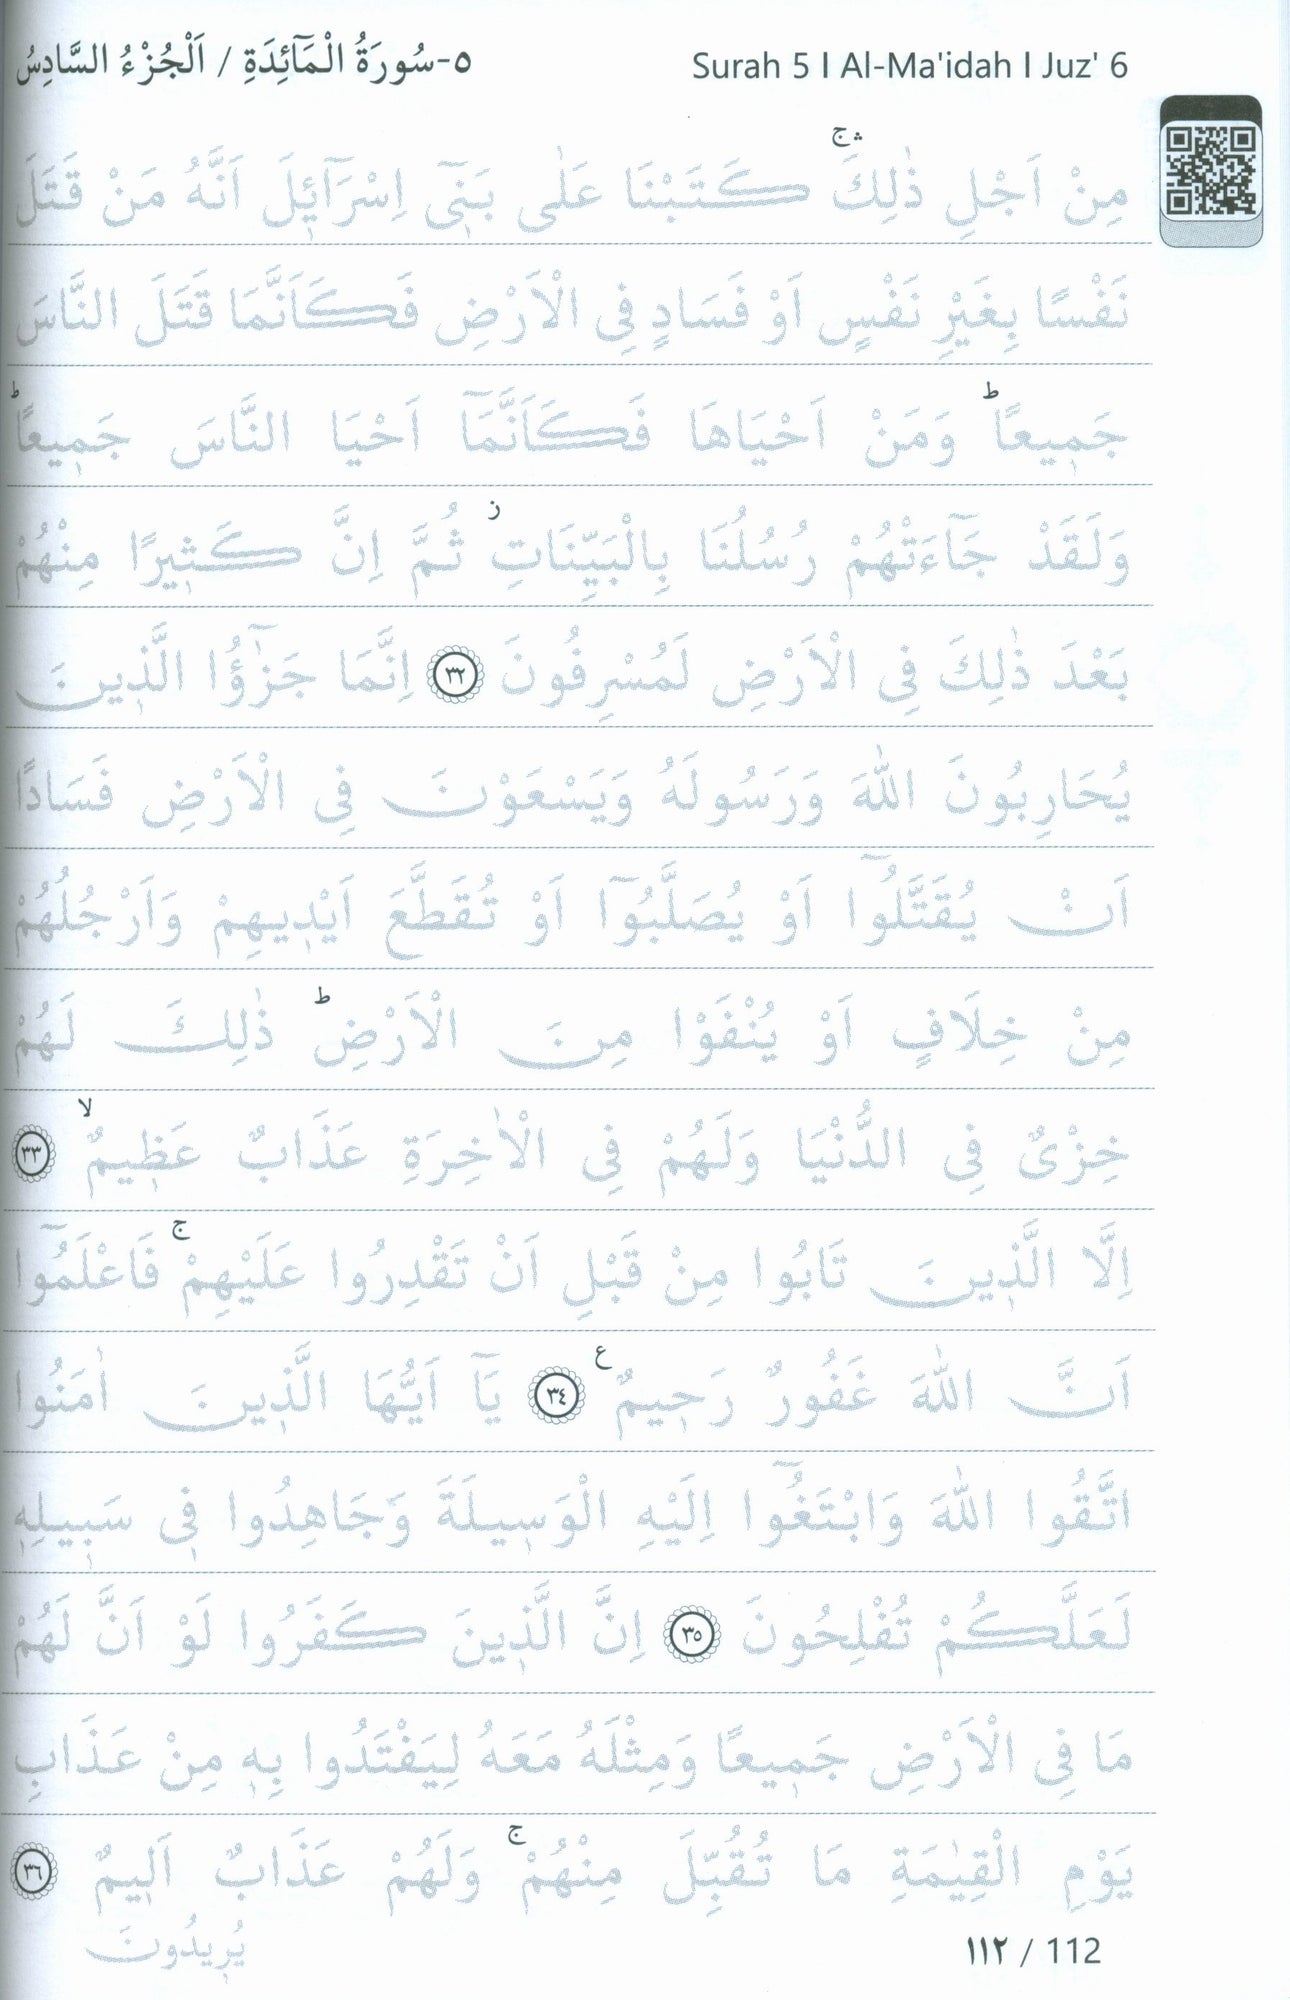 ٥-سُورَةُ الْمَٓائِدَةِ / اَلْجُزْءُ السَّادِسُ Surah 5 I Al-Ma'idah I Juz' 6
مِنْ اَجْلِ ذٰلِكَۛۚ كَتَبْنَا عَلٰى بَن۪ٓي اِسْرَٓائ۪لَ اَنَّهُ مَنْ قَتَلَ
نَفْسًا بِغَيْرِ نَفْسٍ اَوْ فَسَادٍ فِي الْاَرْضِ فَكَاَنَّمَا قَتَلَ النَّاسَ
جَم۪يعًاۜ وَمَنْ اَحْيَاهَا فَكَاَنَّمَٓا اَحْيَا النَّاسَ جَم۪يعًاۜ
وَلَقَدْ جَٓاءَتْهُمْ رُسُلُنَا بِالْبَيِّنَاتِۘ ثُمَّ اِنَّ كَث۪يرًا مِنْهُمْ
بَعْدَ ذٰلِكَ فِي الْاَرْضِ لَمُسْرِفُونَ ٣٢ اِنَّمَا جَزٰٓؤُا الَّذ۪ينَ
يُحَارِبُونَ اللّٰهَ وَرَسُولَهُ وَيَسْعَوْنَ فِي الْاَرْضِ فَسَادًا
اَنْ يُقَتَّلُٓوا اَوْ يُصَلَّبُٓوا اَوْ تُقَطَّعَ اَيْد۪يهِمْ وَاَرْجُلُهُمْ
مِنْ خِلَافٍ اَوْ يُنْفَوْا مِنَ الْاَرْضِۜ ذٰلِكَ لَهُمْ
خِزْيٌ فِي الدُّنْيَا وَلَهُمْ فِي الْاٰخِرَةِ عَذَابٌ عَظ۪يمٌۙ ٣٣
اِلَّا الَّذ۪ينَ تَابُوا مِنْ قَبْلِ اَنْ تَقْدِرُوا عَلَيْهِمْۚ فَاعْلَمُٓوا
اَنَّ اللّٰهَ غَفُورٌ رَح۪يمٌ۟ ٣٤ يَٓا اَيُّهَا الَّذ۪ينَ اٰمَنُوا
اتَّقُوا اللّٰهَ وَابْتَغُٓوا اِلَيْهِ الْوَس۪يلَةَ وَجَاهِدُوا ف۪ي سَب۪يلِه۪
لَعَلَّكُمْ تُفْلِحُونَ ٣٥ اِنَّ الَّذ۪ينَ كَفَرُوا لَوْ اَنَّ لَهُمْ
مَا فِي الْاَرْضِ جَم۪يعًا وَمِثْلَهُ مَعَهُ لِيَفْتَدُوا بِه۪ مِنْ عَذَابِ
يَوْمِ الْقِيٰمَةِ مَا تُقُبِّلَ مِنْهُمْۚ وَلَهُمْ عَذَابٌ اَل۪يمٌ ٣٦
يُر۪يدُونَ
١١٢ / 112